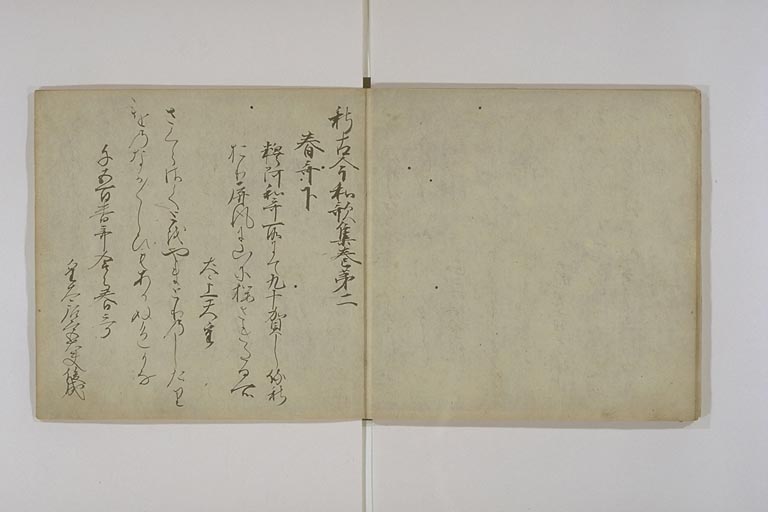 新古今和歌集巻第二
春哥下
釈阿和哥所にて九十賀し侍し
おり屏風に山に桜さきたる所
太上天皇
さくらさくとをやまとりのしたり
をのなか〳〵し日もあかぬ色かな
千五百番哥合に春哥
皇太后宮大夫俊成